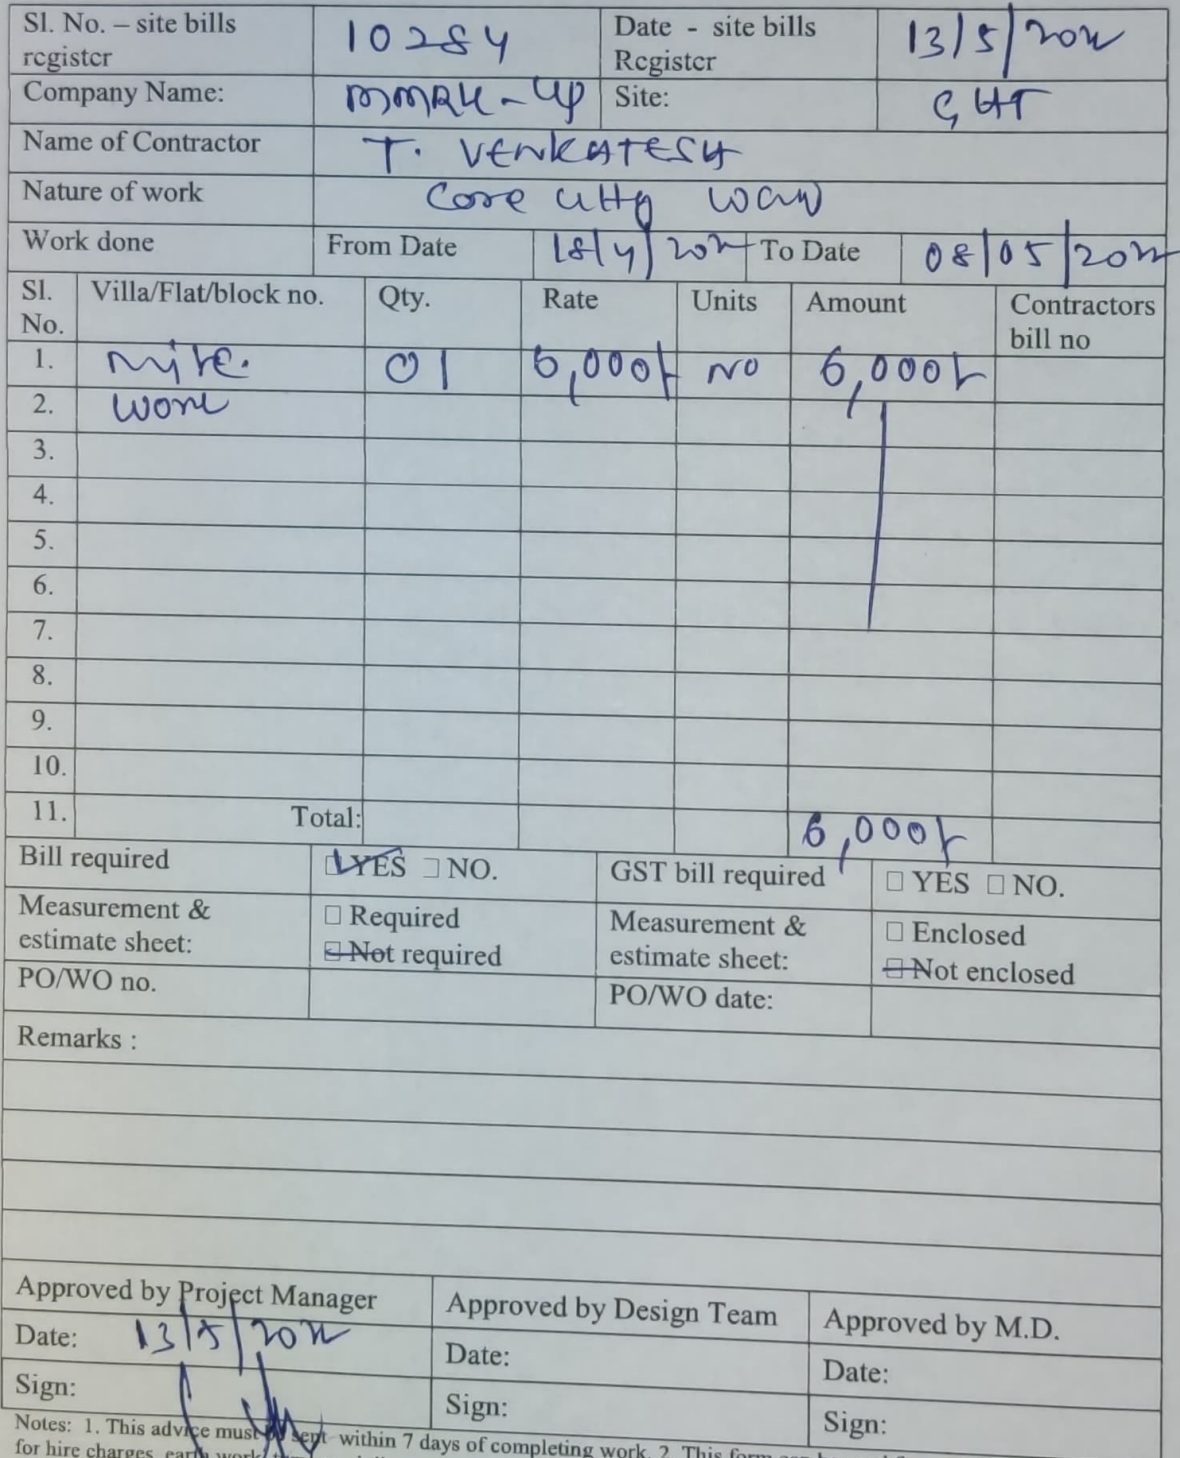 Sl. No. – site bills register 10284 Date - site bills Register 13/5/2022
Company Name: MMRK-UP Site: GHT
Name of Contractor T. VENKATESH
Nature of work Core
Work done From Date 18/4/2022 To Date 08/05/2022
Sl. No. Villa/Flat/block no. Qty. Rate Units Amount Contractors bill no
1. 01 6,000/- NO 6,000/-
2. work
3.
4.
5.
6.
7.
8.
9.
10.
11. Total: 6,000/-
Bill required ☑ YES □ NO. GST bill required □ YES □ NO.
Measurement & estimate sheet: □ Required Not required Measurement & estimate sheet: □ Enclosed Not enclosed
PO/WO no. PO/WO date:
Remarks :
Approved by Project Manager Approved by Design Team Approved by M.D.
Date: 13/5/2022 Date: Date:
Sign: Sign: Sign:
Notes: 1. This advice must be sent within 7 days of completing work. 2. This form
for hire charges, earth work,